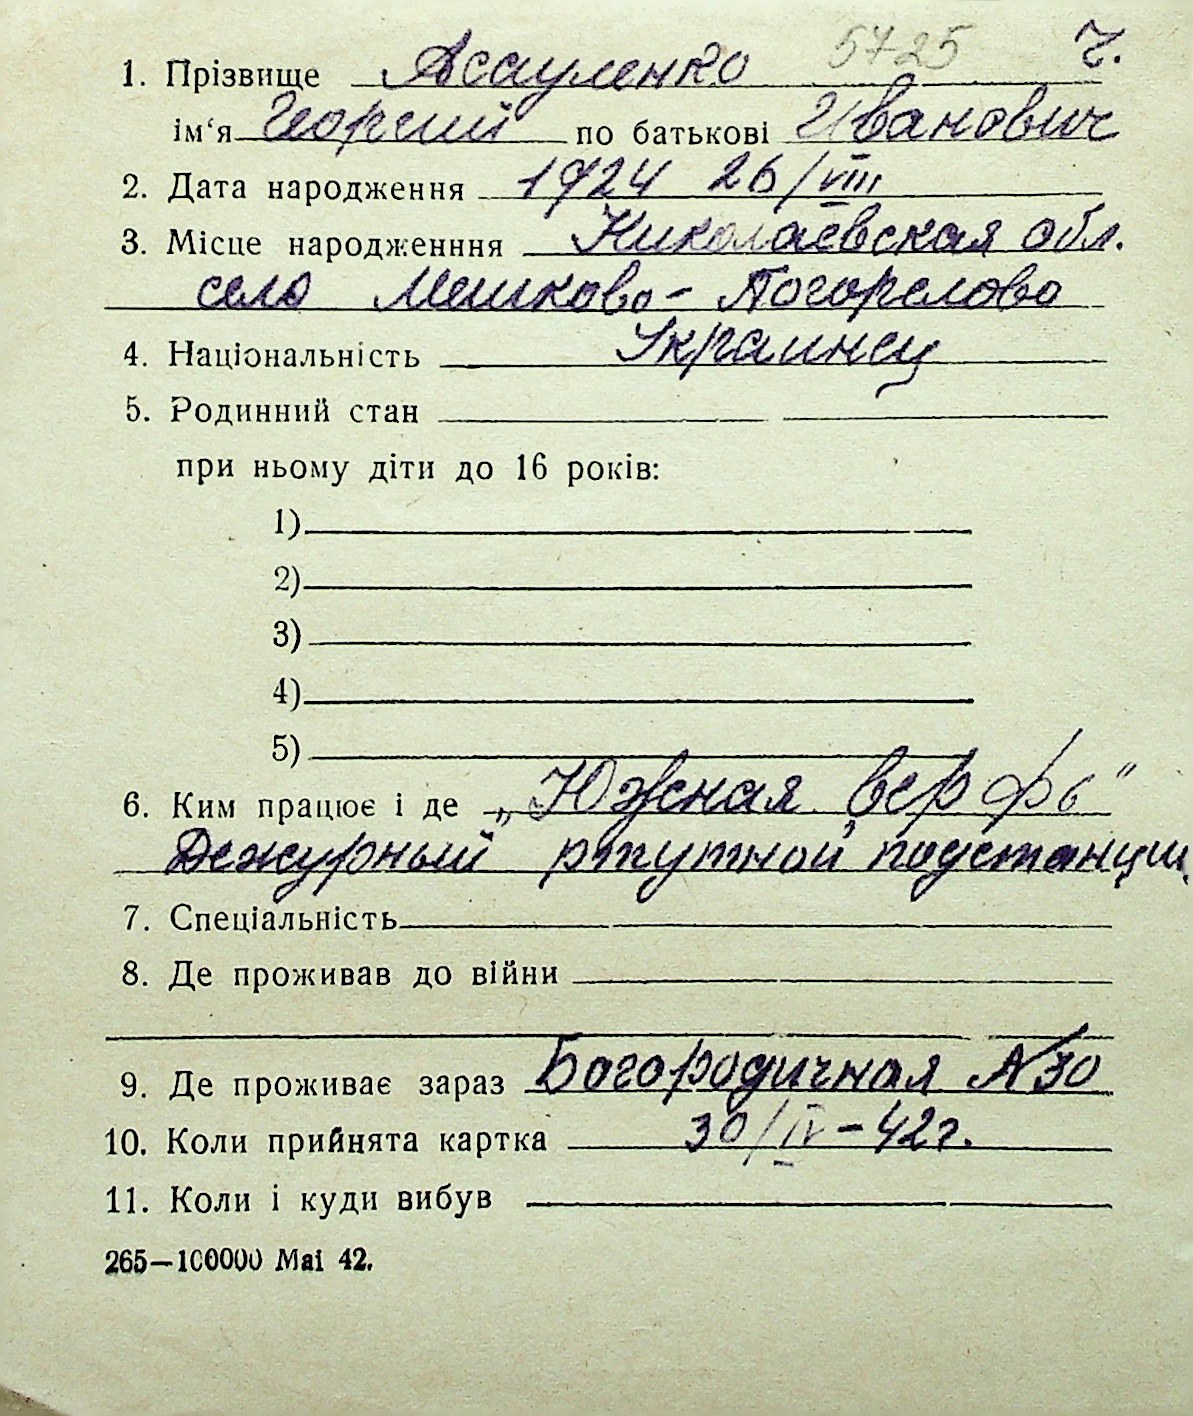 5725 Ч.
1. Прізвище Асауленко
ім‘я Георгий по батькові Иванович
2. Дата народження 1924 26/VIII
3. Місце народженння Николаевская обл.
село Мешково-Погорелово
4. Національність Украинец
5. Родинний стан
при ньому діти до 16 років:
1)
2)
3)
4)
5)
6. Ким працює і де „Южная верфь“
Дежурный ртутной подстанции.
7. Спеціальність
8. Де проживав до війни
9. Де проживає зараз Богородичная №30
10. Коли прийнята картка 30/IV-42г.
11. Коли і куди вибув
265—100000 Mai 42.